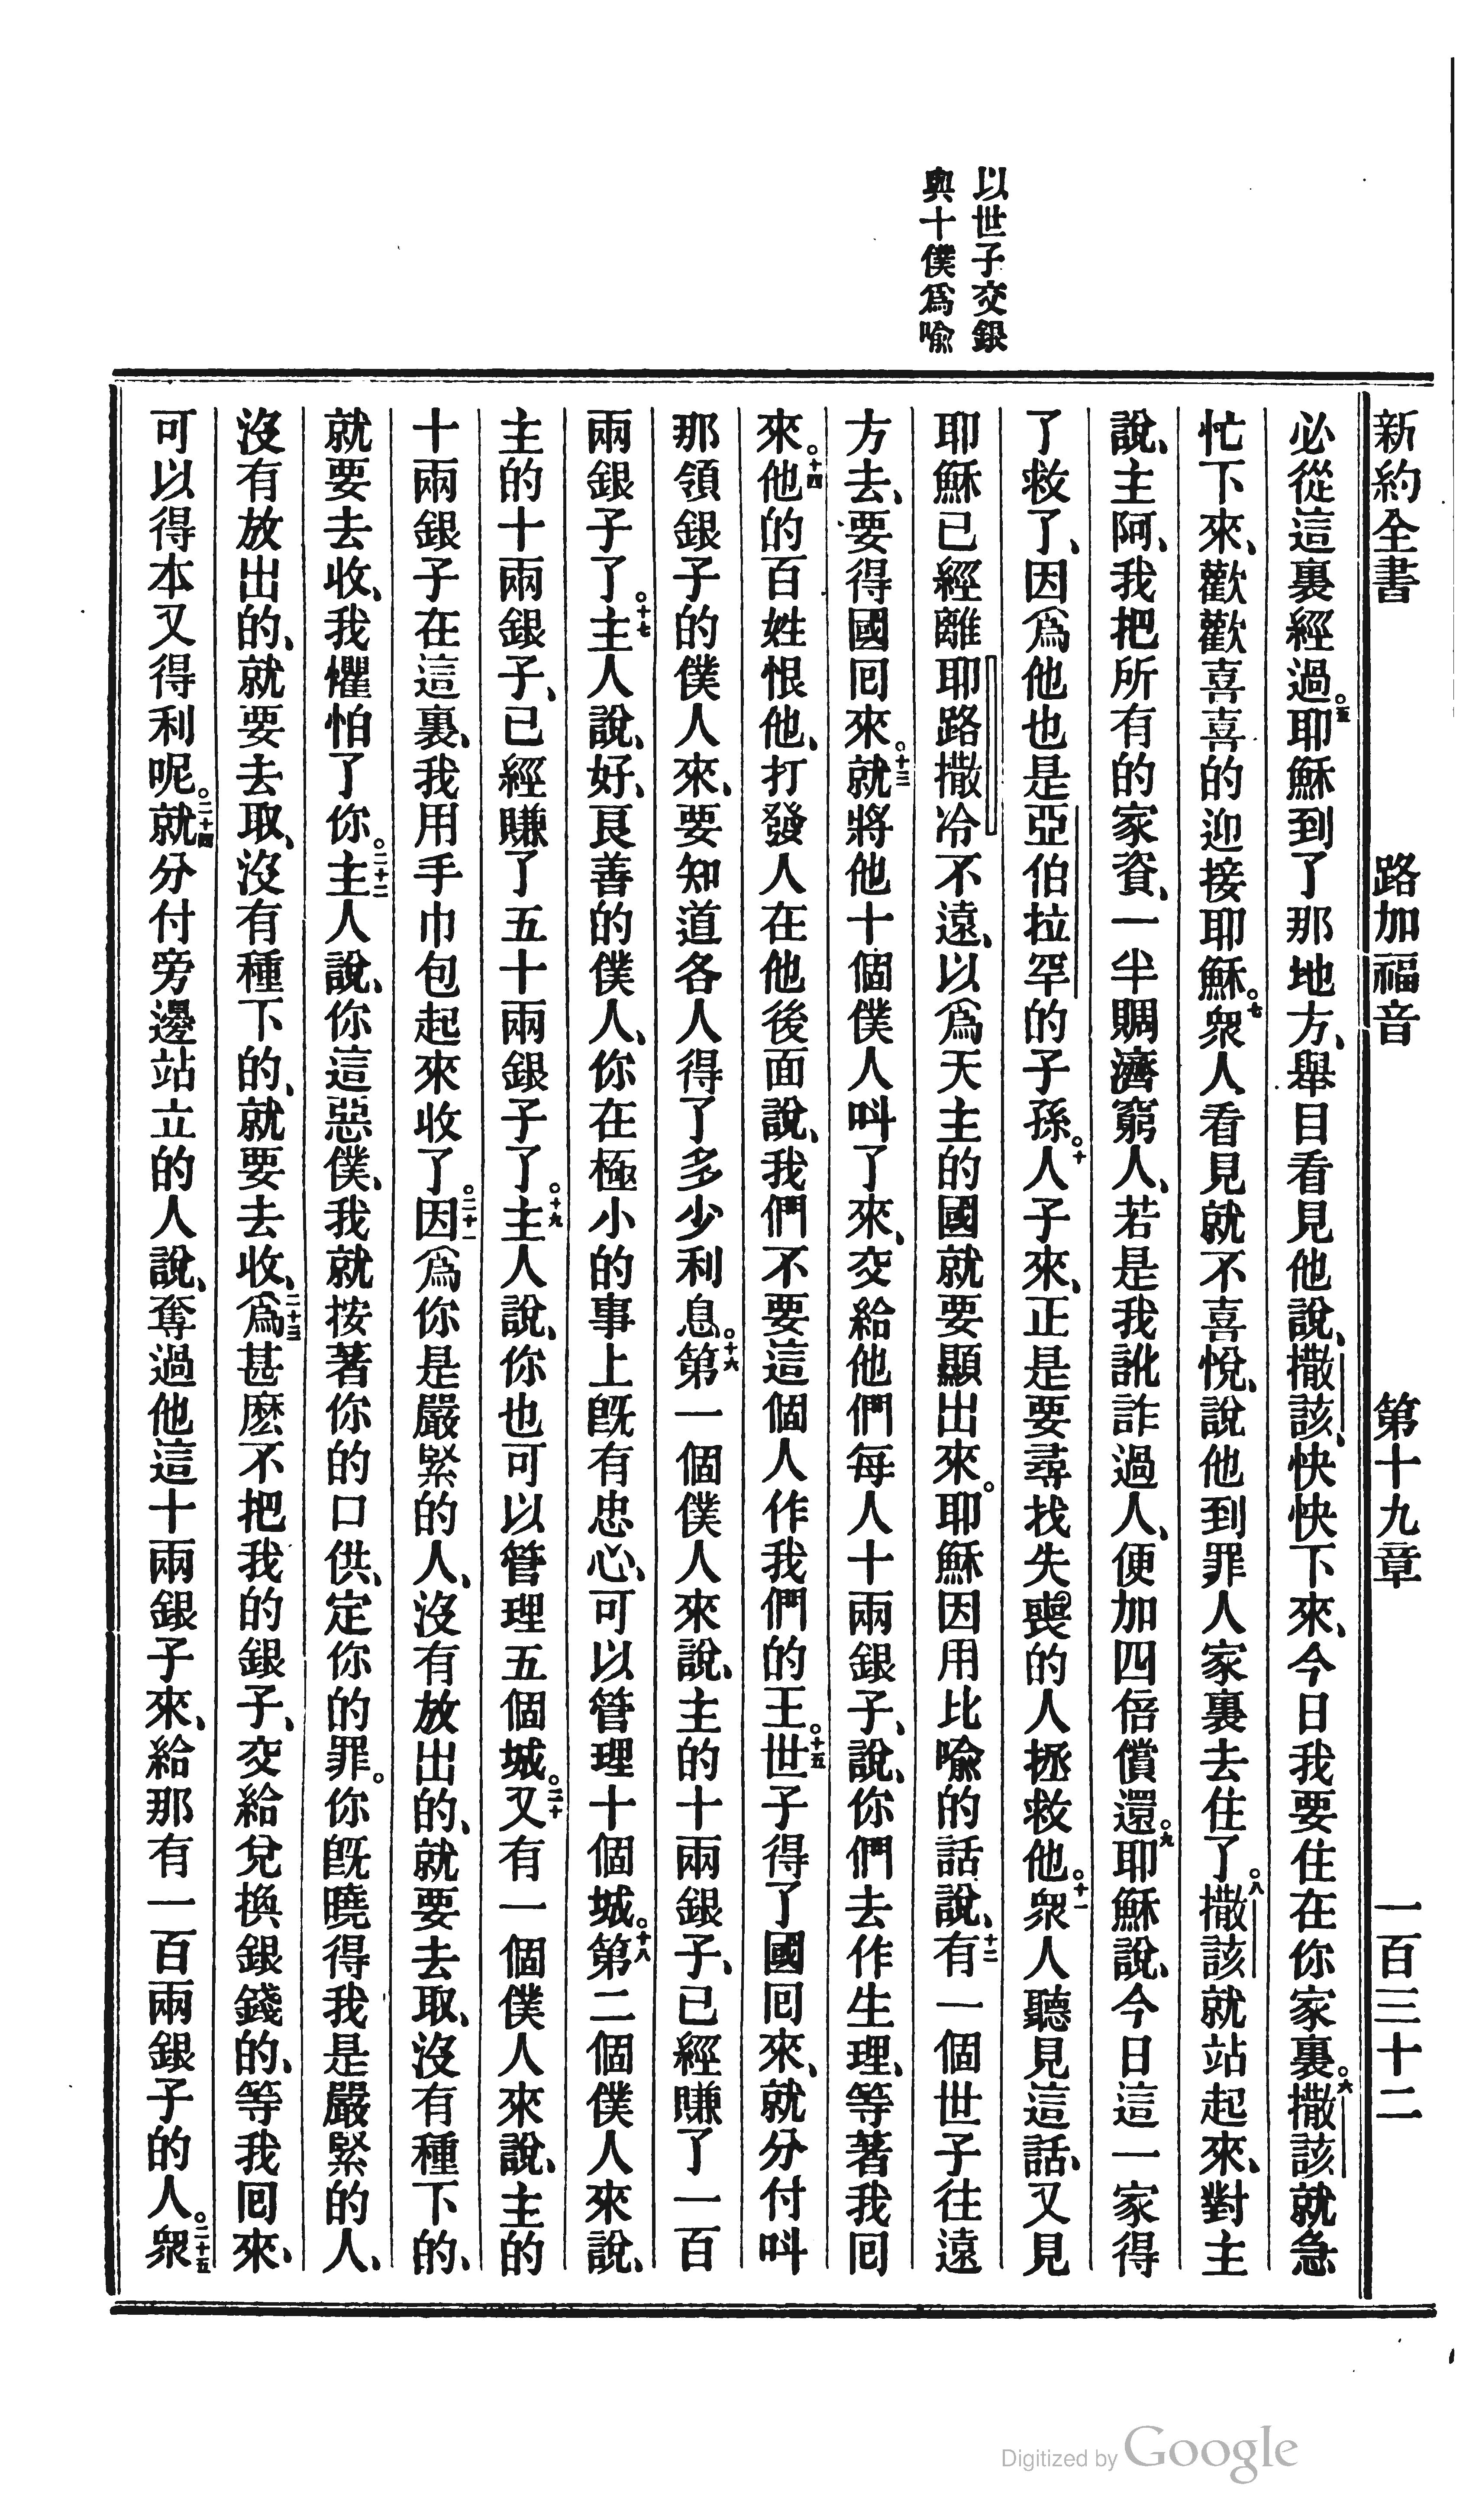 新約全書 路加福音 第十九章 一百三十二
以世子交銀
與十僕爲喻
必從這裏經過。五耶穌到了那地方、舉目看見他說、撒該、快快下來、今日我要住在你家裏。六撒該就急
忙下來、歡歡喜喜的迎接耶穌。七衆人看見就不喜悅、說他到罪人家裏去住了。八撒該就站起來、對主
說、主阿、我把所有的家資、一半賙濟窮人、若是我訛詐過人、便加四倍償還。九耶穌說、今日這一家得
了救了、因爲他也是亞伯拉罕的子孫。十人子來、正是要尋找失喪的人拯救他。十一衆人聽見這話、又見
耶穌已經離耶路撒冷不遠、以爲天主的國就要顯出來。耶穌因用比喻的話說、十二有一個世子往遠
方去、要得國囘來。十三就將他十個僕人呌了來、交給他們每人十兩銀子、說、你們去作生理、等著我囘
來。十四他的百姓恨他、打發人在他後面說、我們不要這個人作我們的王。十五世子得了國囘來、就分付呌
那領銀子的僕人來、要知道各人得了多少利息。十六第一個僕人來說、主的十兩銀子、已經賺了一百
兩銀子了。十七主人說、好、良善的僕人、你在極小的事上旣有忠心、可以管理十個城。十八第二個僕人來說、
主的十兩銀子、已經賺了五十兩銀子了。十九主人說、你也可以管理五個城。二十又有一個僕人來說、主的
十兩銀子在這裏、我用手巾包起來收了。二十一因爲你是嚴緊的人、沒有放出的、就要去取、沒有種下的、
就要去收、我懼怕了你。二十二主人說、你這惡僕、我就按著你的口供、定你的罪。你旣曉得我是嚴緊的人、
沒有放出的、就要去取、沒有種下的、就要去收、二十三爲甚麽不把我的銀子、交給兌換銀錢的、等我囘來、
可以得本又得利呢。二十四就分付旁邊站立的人說、奪過他這十兩銀子來、給那有一百兩銀子的人。二十五衆
Digitized by Google